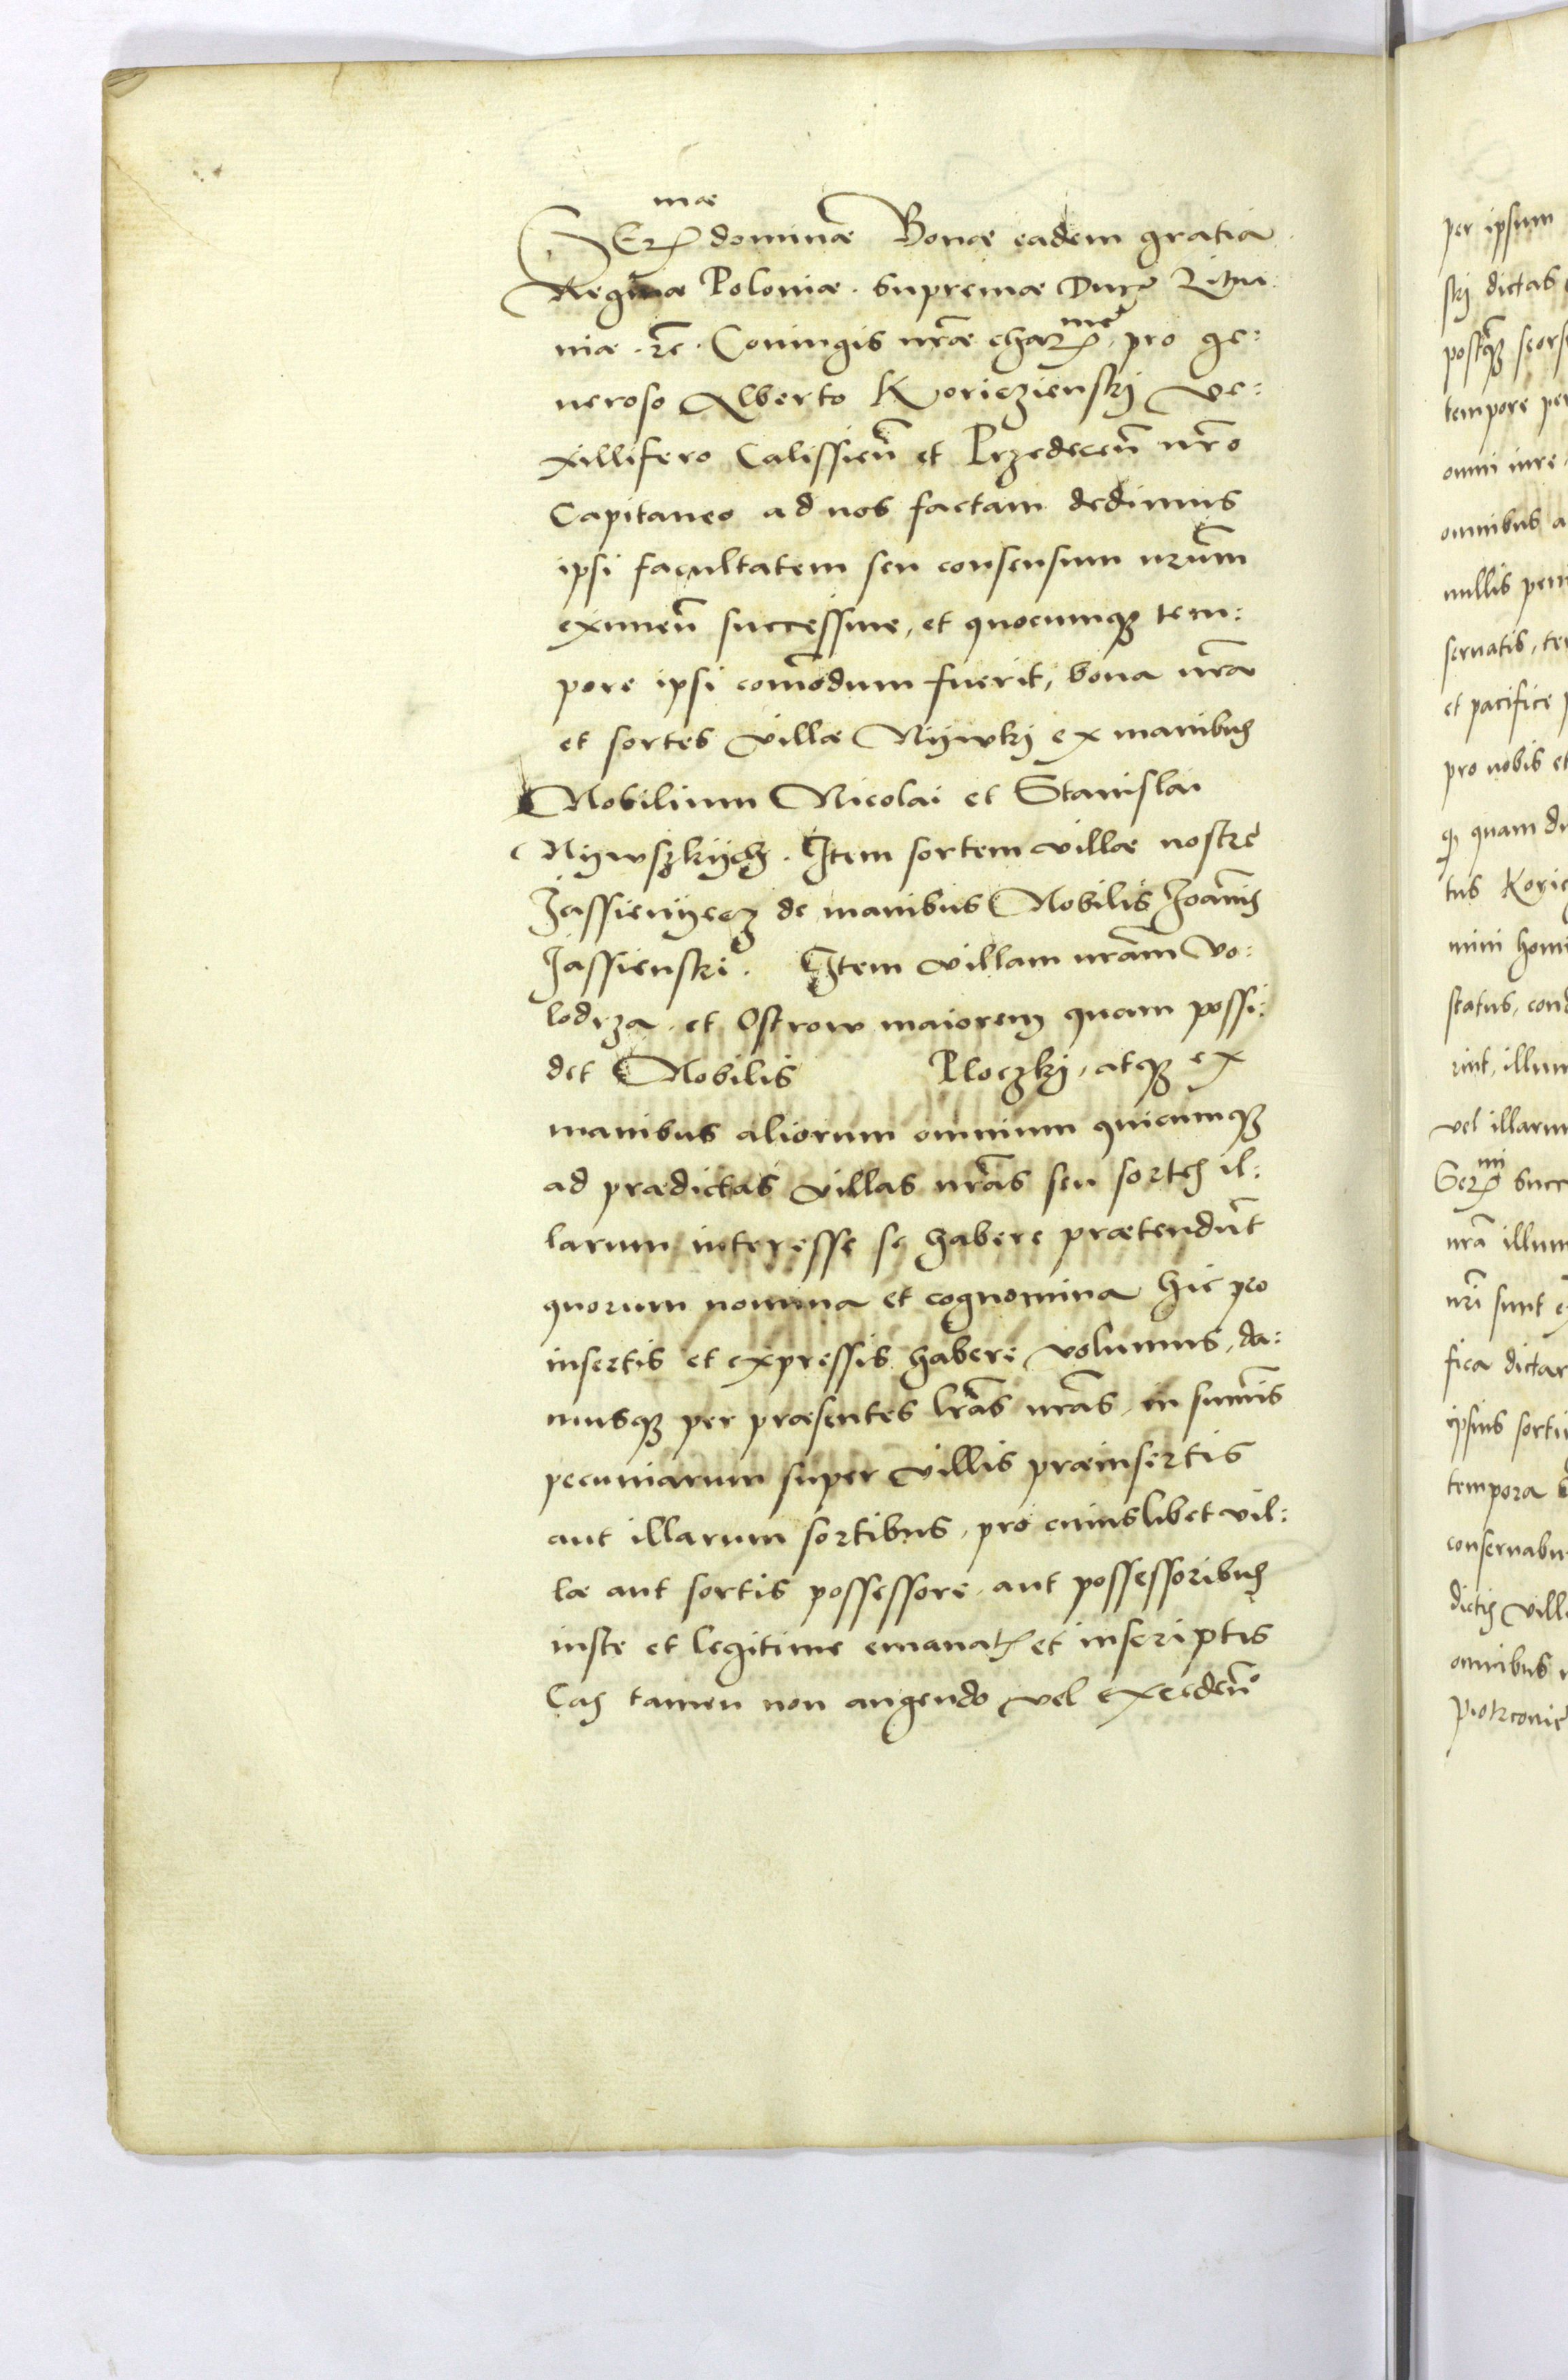 SEr^mae dominae Bonae eadem gratia
Reginae Poloniae. Supremae Ducis Litua:
niae. etc. Coniugis nrae char^me, pro ge:
neroso Alberto Koriczienskj ve:
xillifero Calissien̄ et Przedecen̄ nr̄o
Capitaneo ad nos factam dedimus
ipsi facultatem seu consensum nr̄um
eximen̄ successiue, et quocumq tem:
pore ipsi com̄odum fuerit, bona nr̄a
et sortes villae Nijwkj ex manibus
Nobilium Nicolai et Stanislai
Nijwszkijch. Item sortem villae nostrę
Jassienijecz de manibus Nobilis Joan̄is
Jassienski. Item villam nr̄am Vo:
lodrza et Ostrow maiorem quam possi:
det Nobilis Ploczkj, atq ex
manibus aliorum omnium quicumq
ad praedictas villas nr̄as seu sortes il:
larum interesse se habere praetendūt
quorum nomina et cognomina hic pro
insertis et expressis habere volumus, da:
musq per praesentes lr̄as nr̄as, in sum̄is
pecuniarum super villis praeinsertis
aut illarum sortibus, pro cuiuslibet vil:
lae aut sortis possessore, aut possessoribus
iuste et legitime emanatis et inscriptis
Eas tamen non augendo vel excedēn̄o
per ipsum
skj dictas
postq seors
tempore per
omni iure
omnibus a
nullis pen
seruatis, te
et pacifice p
pro nobis et
q quam di
tus Koric
mini hom
status, cond
rint, illum
vel illarum
Ser^mi succ
nr̄a illum
nr̄i sunt e
fica dictar
ipsius sorti
tempora
conseruabu
dictis villa
omnibus
Piotrconie